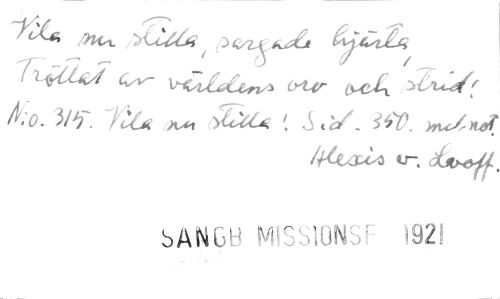 Vila nu stilla, sargade hjärta,
Tröttat av världens oro och strid!
N:o. 315. Vila nu stilla! Sid. 350. med not.
Alexis v. Lvoff.
SANGB MISSIONSF 1921